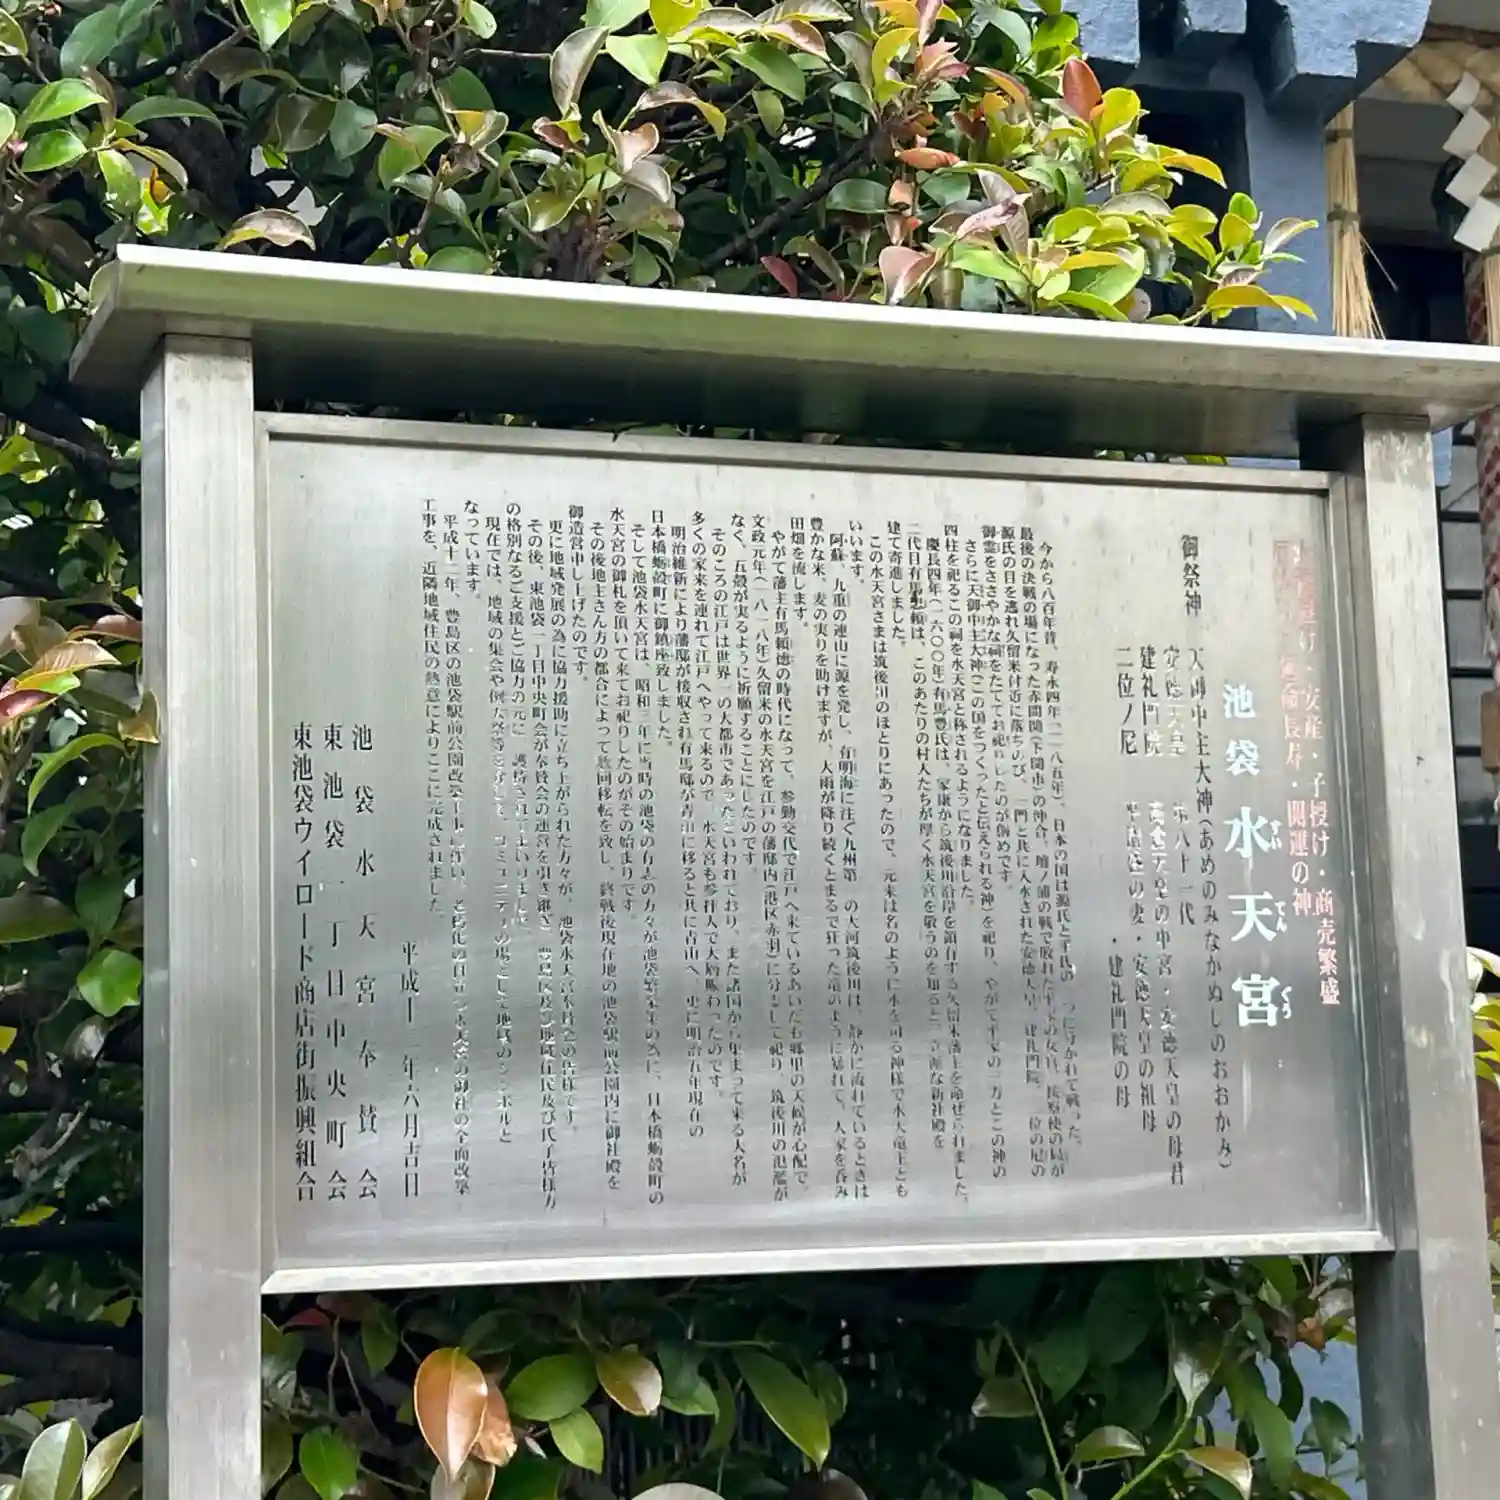 ・安産・子授け・商売繁盛
長寿・開運の神
池袋 水天宮
すい てん ぐう
御祭神
天御中主大神(あめのみなかぬしのおおかみ)
安徳天皇 第八十一代
建礼門院 高倉天皇の中宮・安徳天皇の母君
二位ノ尼 平清盛の妻・安徳天皇の祖母
・建礼門院の母
今から八百年昔、寿永四年(一一八五年)、日本の国は源氏と平氏の二つに分かれて戦った。
最後の決戦の場になった赤間関(下関市)の沖合、壇ノ浦の戦で敗れた平家の女官、按察使の局が
源氏の目を逃れ久留米付近に落ちのび、一門と共に入水された安徳天皇、建礼門院、二位の尼の
御霊をささやかな祠をたててお祀りしたのが始めです。
さらに天御中主大神(この国をつくったと伝えられる神)を祀り、やがて平家の三方とこの神の
四柱を祀るこの祠を水天宮と称されるようになりました。
慶長四年(一六〇〇年)有馬豊氏は、家康から筑後川沿岸を領有する久留米藩主を命ぜられました。
二代目有馬忠頼は、このあたりの村人たちが厚く水天宮を敬うのを知ると、立派な新社殿を
建て寄進しました。
この水天宮さまは筑後川のほとりにあったので、元来は名のように水を司る神様で水天竜王とも
いいます。
阿蘇、九重の連山に源を発し、有明海に注ぐ九州第一の大河筑後川は、静かに流れているときは
豊かな米、麦の実りを助けますが、大雨が降り続くとまるで狂った竜のように暴れて、人家を呑み
田畑を流します。
やがて藩主有馬頼徳の時代になって、参勤交代で江戸へ来ているあいだも郷里の天候が心配で、
文政元年(一八一八年)久留米の水天宮を江戸の藩邸内(港区赤羽)に分社して祀り、筑後川の氾濫が
なく、五穀が実るように祈願することにしたのです。
そのころの江戸は世界一の大都市であったといわれており、また諸国から集まって来る大名が
多くの家来を連れて江戸へやって来るので、水天宮も参拝人で大層賑わったのです。
明治維新により藩邸が接収され有馬邸が青山に移ると共に青山へ、更に明治五年現在の
日本橋蛎殻町に御鎮座致しました。
そして池袋水天宮は、昭和三年に当時の池袋の有志の方々が池袋繁栄の為に、日本橋蛎殻町の
水天宮の御札を頂いて来てお祀りしたのがその始まりです。
その後地主さん方の都合によって数回移転を致し、終戦後現在地の池袋駅前公園内に御社殿を
御造営申し上げたのです。
更に地域発展の為に協力援助に立ち上がられた方々が、池袋水天宮奉賛会の皆様です。
その後、東池袋一丁目中央町会が奉賛会の運営を引き継ぎ、豊島区及び地域住民及び氏子皆様方
の格別なるご支援とご協力の元に、護持されてまいりました。
現在では、地域の集会や例大祭等を介して、コミュニティの場として地域のシンボルと
なっています。
平成十二年、豊島区の池袋駅前公園改築工事に伴い、老朽化の目立つ水天宮の御社の全面改築
工事を、近隣地域住民の熱意によりここに完成されました。
平成十二年六月吉日
池袋水天宮奉賛会
東池袋一丁目中央町会
東池袋ウイロード商店街振興組合